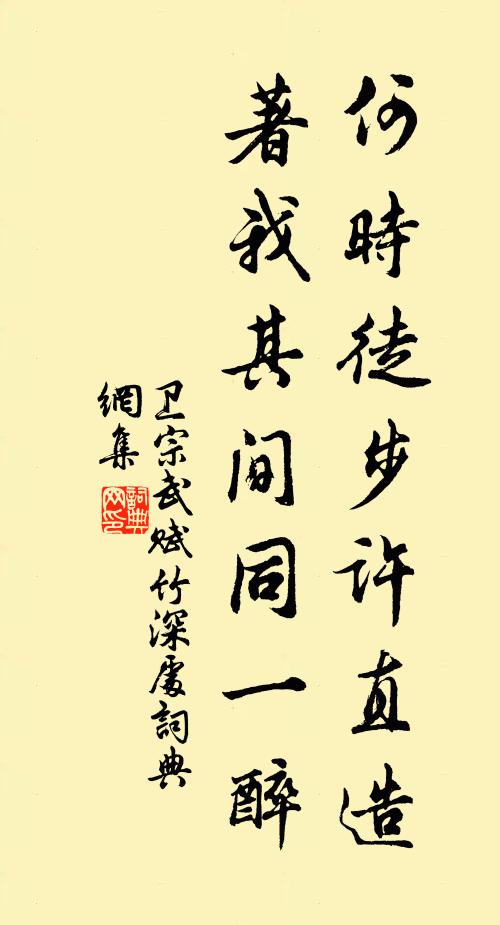 何時徒步許直造
著我其間同一醉
卫宗武賦竹深處詞典
網集
詞典
网印